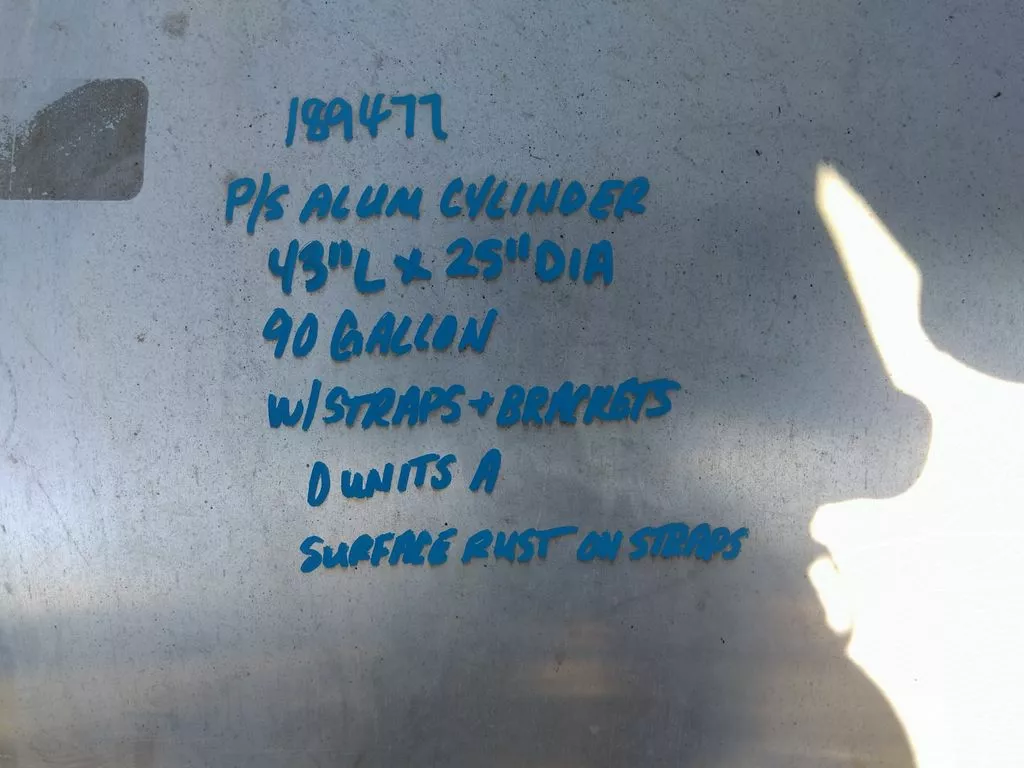 189477
P/S ALUM CYLINDER
43"L x 25" DIA
90 GALLON
W/STRAPS + BRACKETS
0 UNITS A
SURFACE RUST ON STRAPS